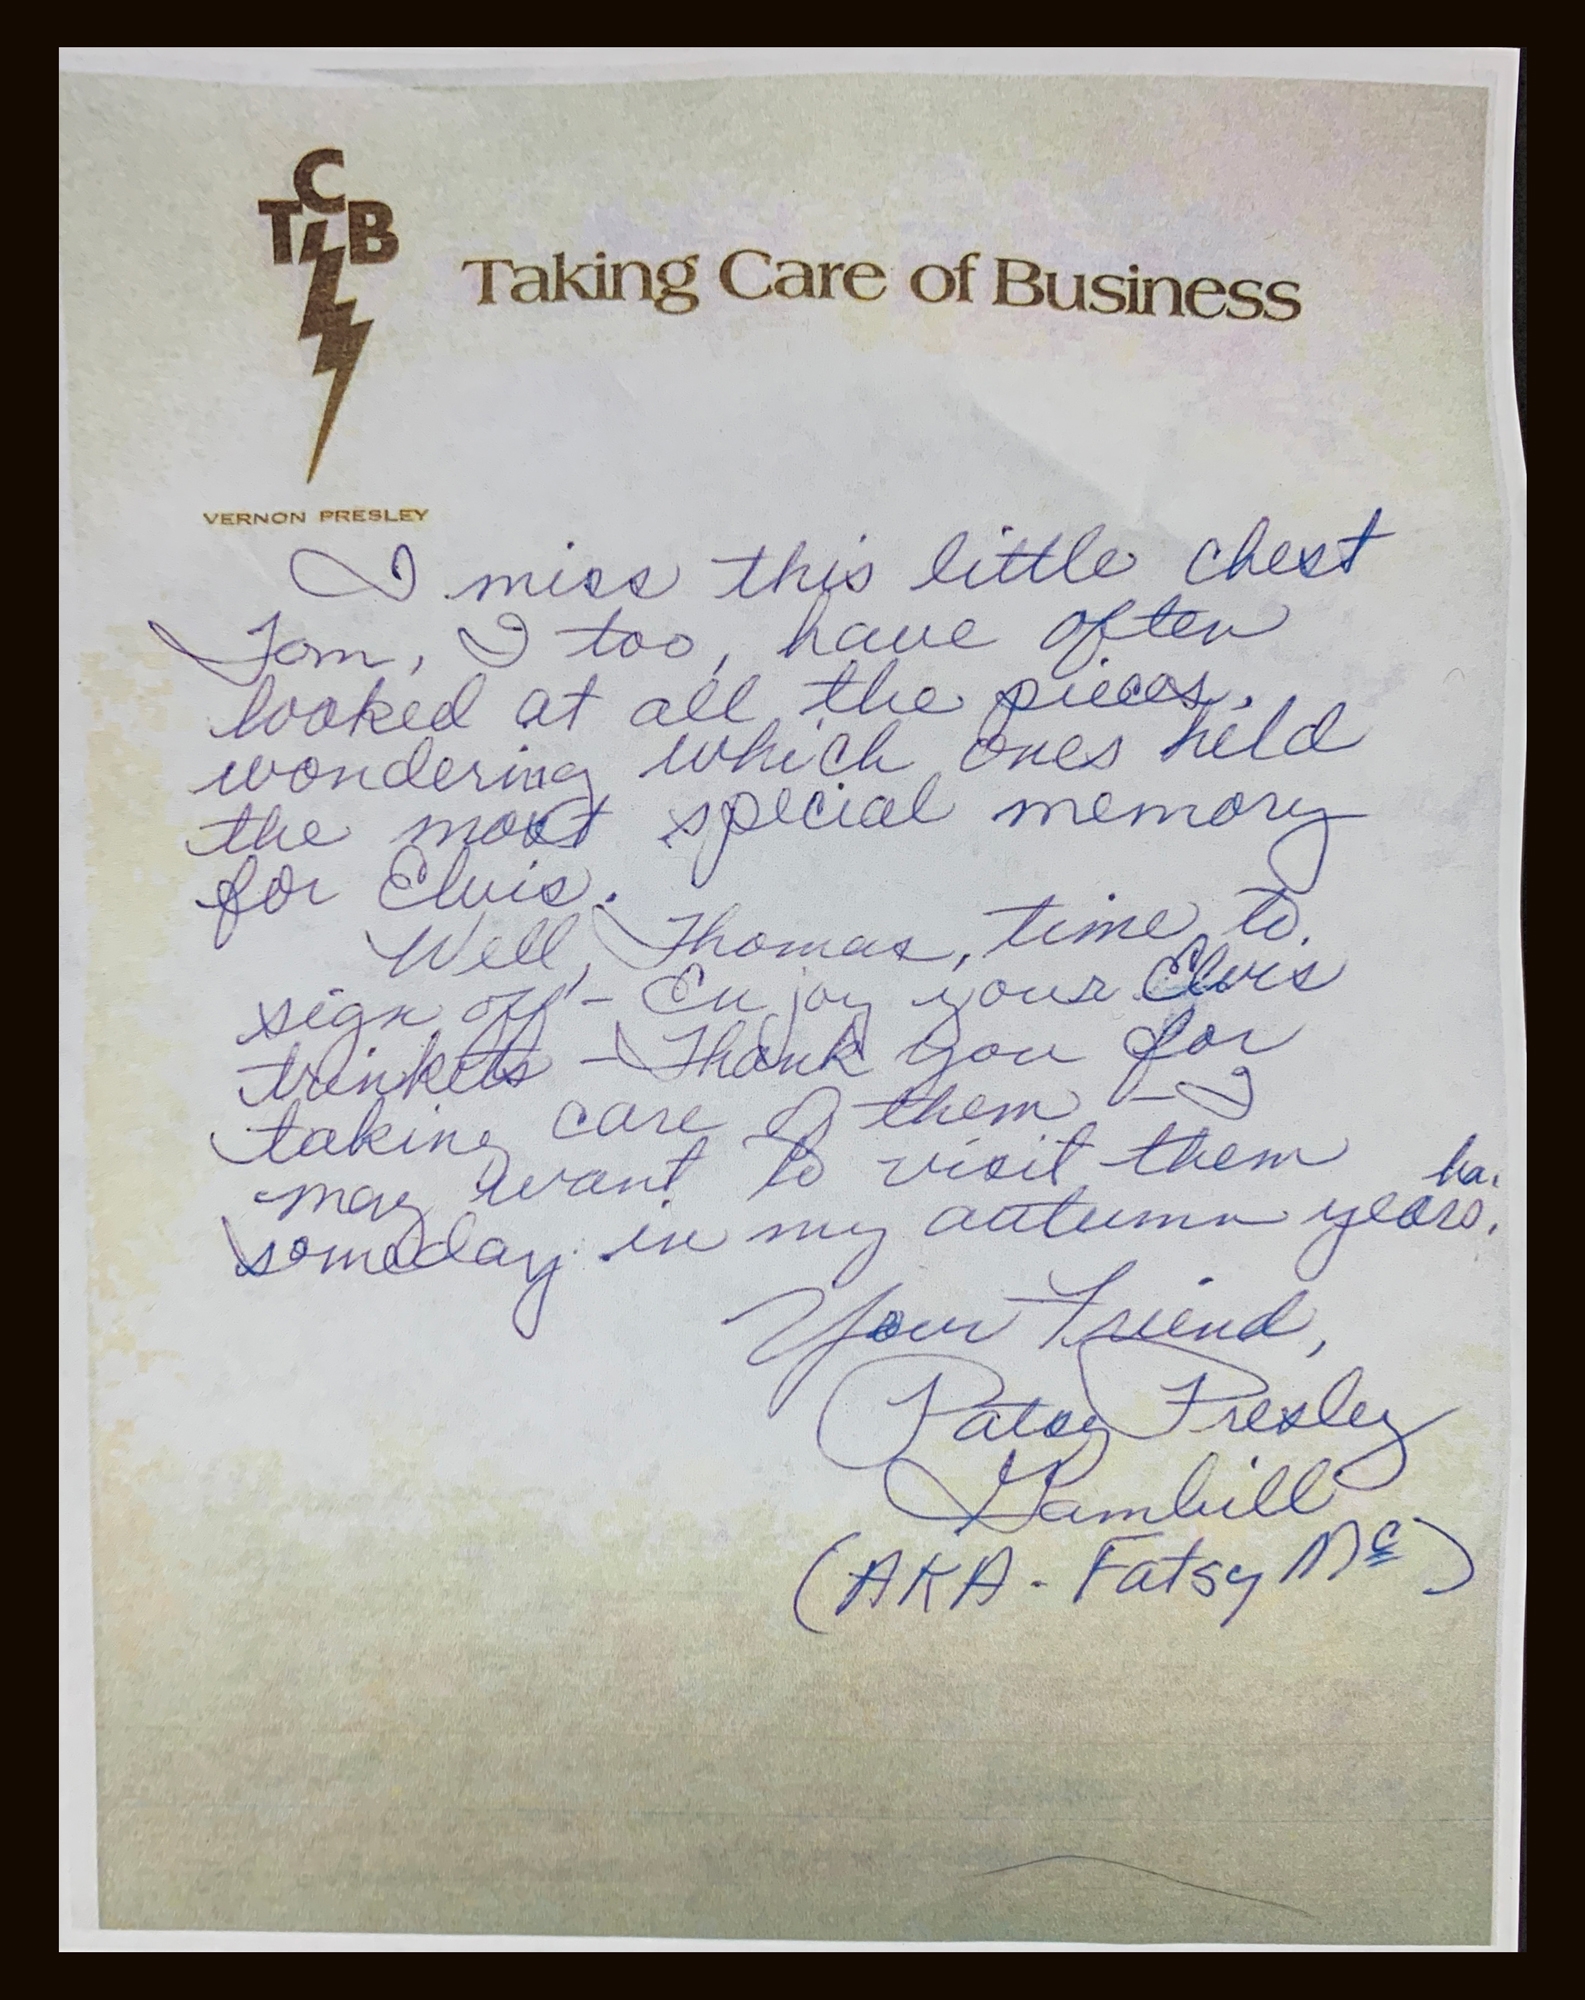 TCB
Taking Care of Business
VERNON PRESLEY
I miss this little chest
Tom, I too, have often
looked at all the pieces,
wondering which ones held
the most special memory
for Elvis.
Well, Thomas, time to
sign off - Enjoy your Elvis
trinkets - Thank you for
taking care of them - I
may want to visit them
someday in my autumn years. ha.
Your Friend,
Patsy Presley
Gambill
(AKA - Fatsy Mc)